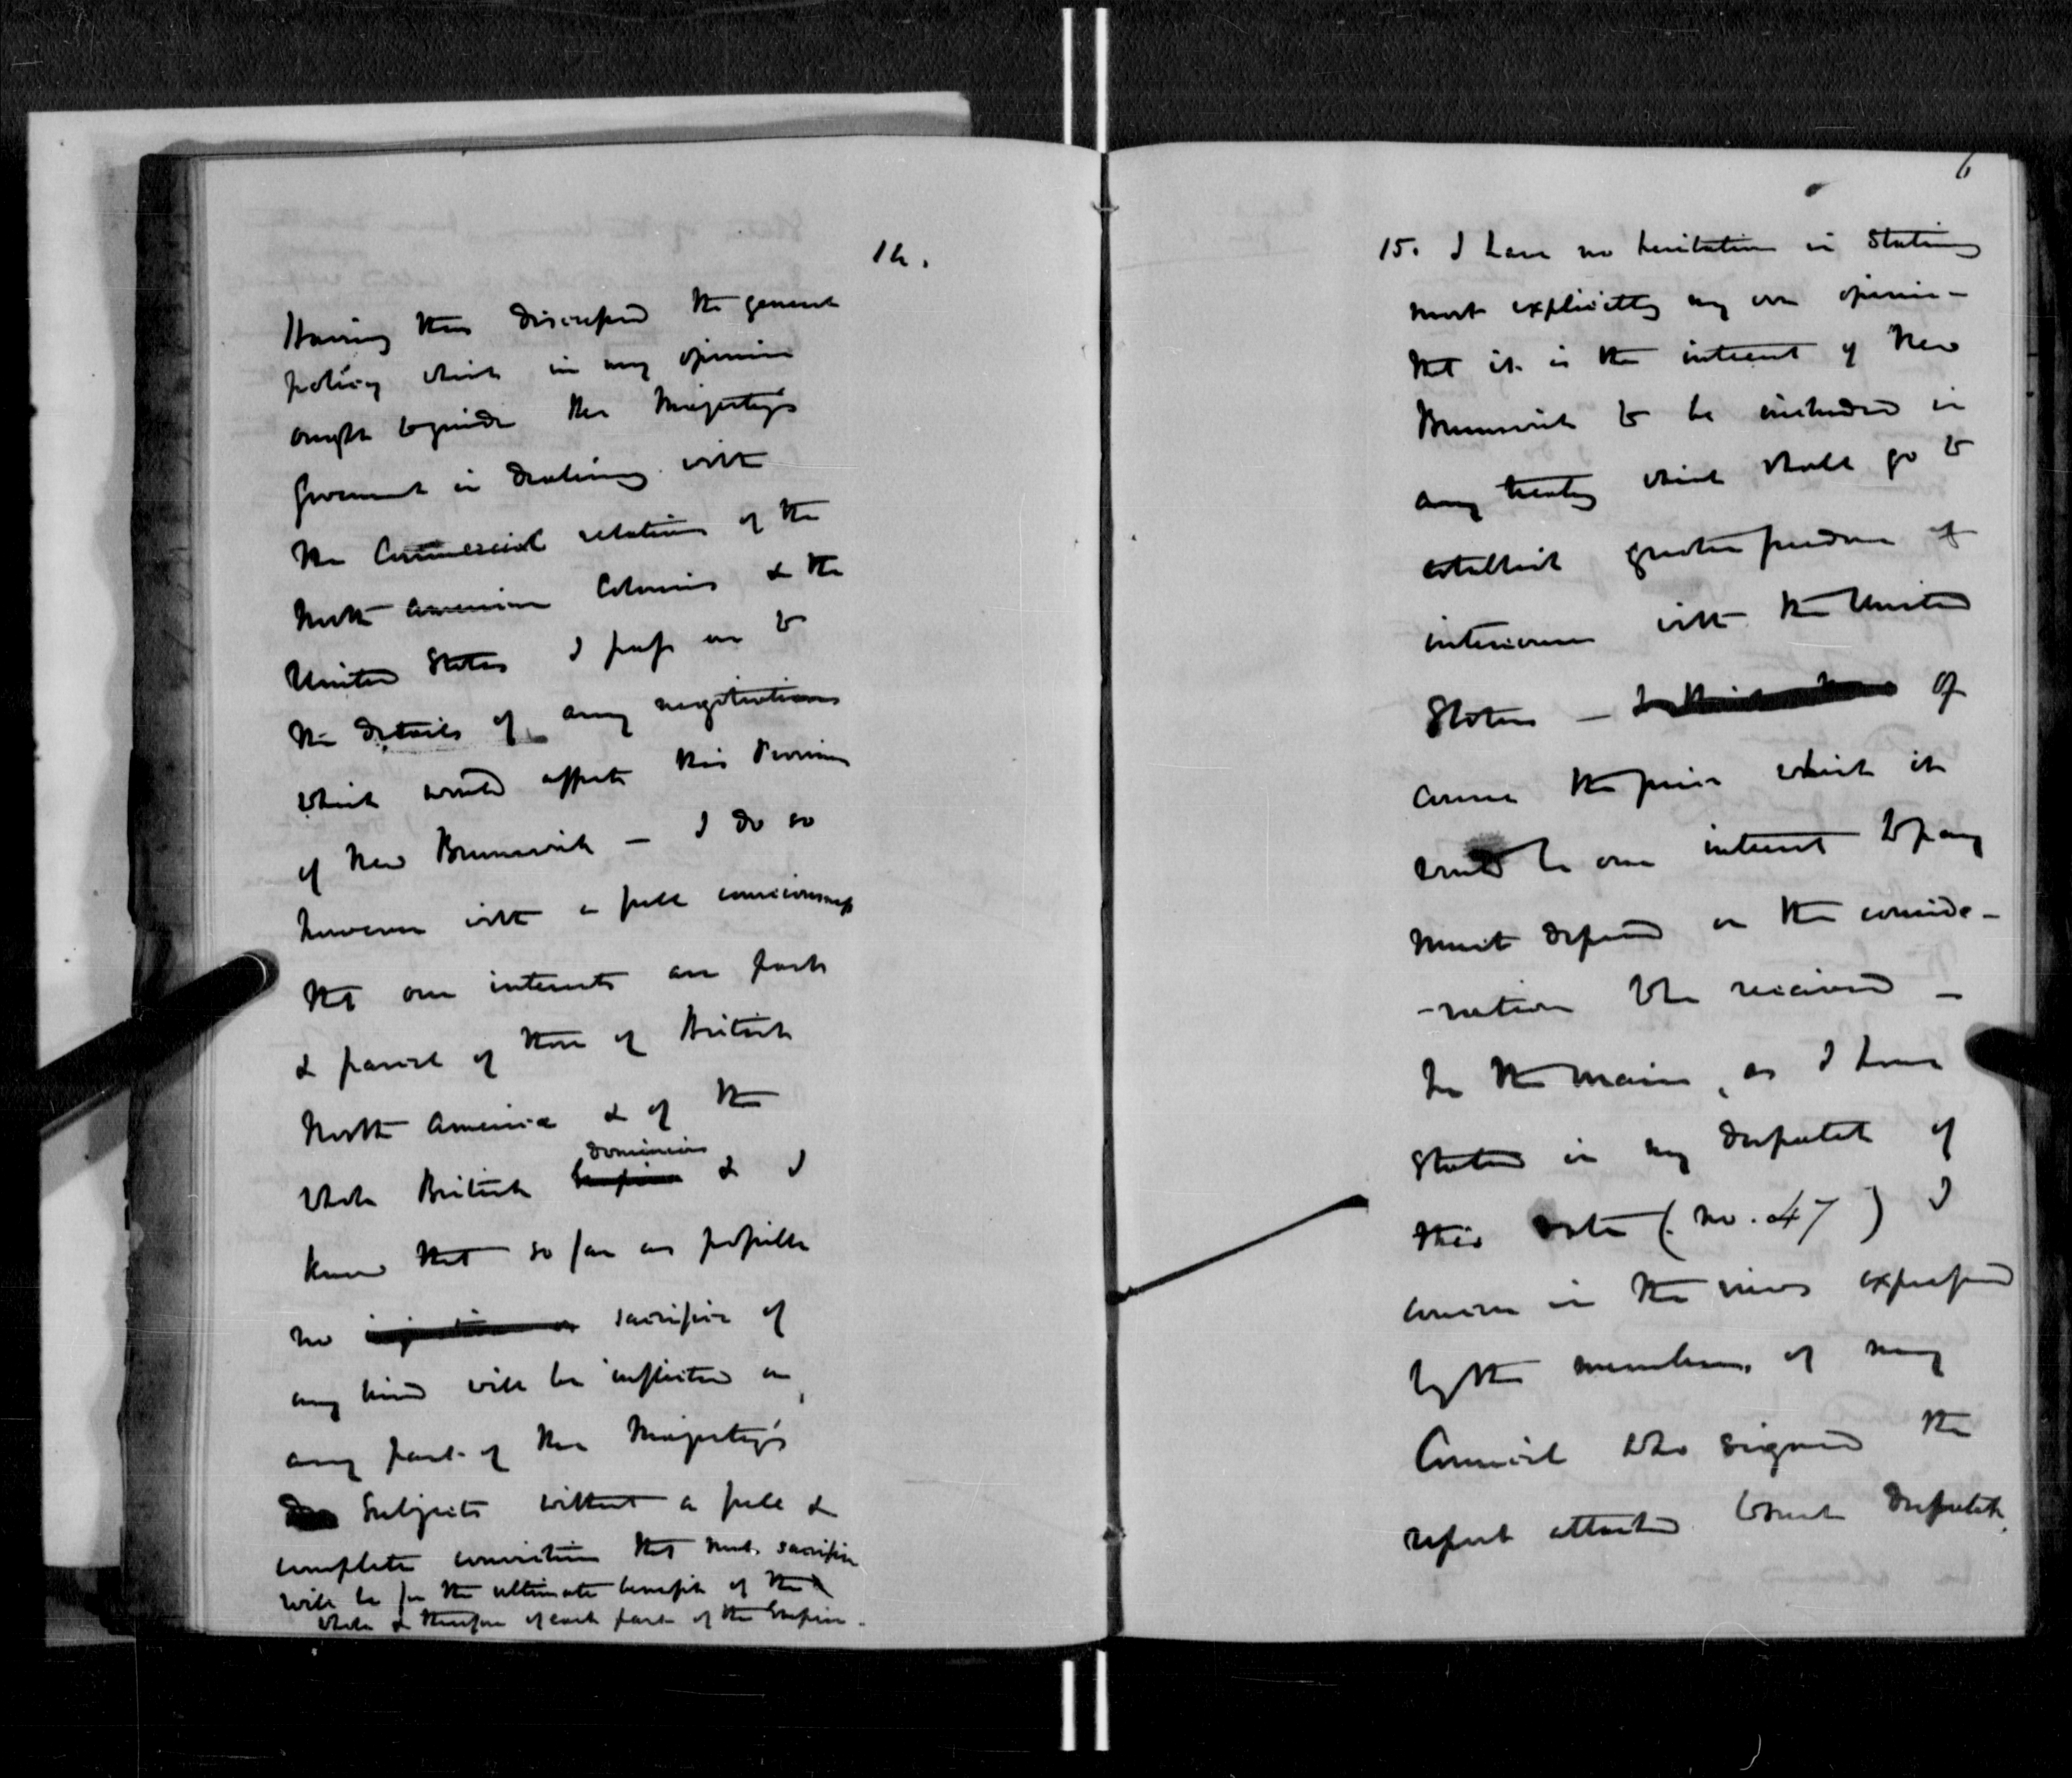 14.
Having thus discussed the general
policy which in my opinion
ought to guide Her Majesty's
Government in dealing with
the Commercial relations of the
North American Colonies & the
United States I pass on to
the details of any negotiations
which would affect this Province
of New Brunswick — I do so
however with a full consciousness
that our interests are part
& parcel of those of British
North America & of the
dominions
whole British Empire & I
know that so far as possible
no sacrifice of
any kind will be inflicted on
any part of Her Majesty's
Subjects without a full &
complete conviction that such sacrifice
will be for the ultimate benefit of the
whole & therefore of each part of the Empire.
6
15. I have no hesitation in stating
most explicitly my own opinion —
that it is the interest of New
Brunswick to be included in
any treaty which shall go to
establish greater freedom of
intercourse with the United
States — Of
course the price which it
would be our interest to pay
must depend on the conside-
-ration to be received —
In the main, as I have
stated in my despatch of
this date (no. 47) I
concur in the views expressed
by the members of my
Council who signed the
report attached to such despatch.